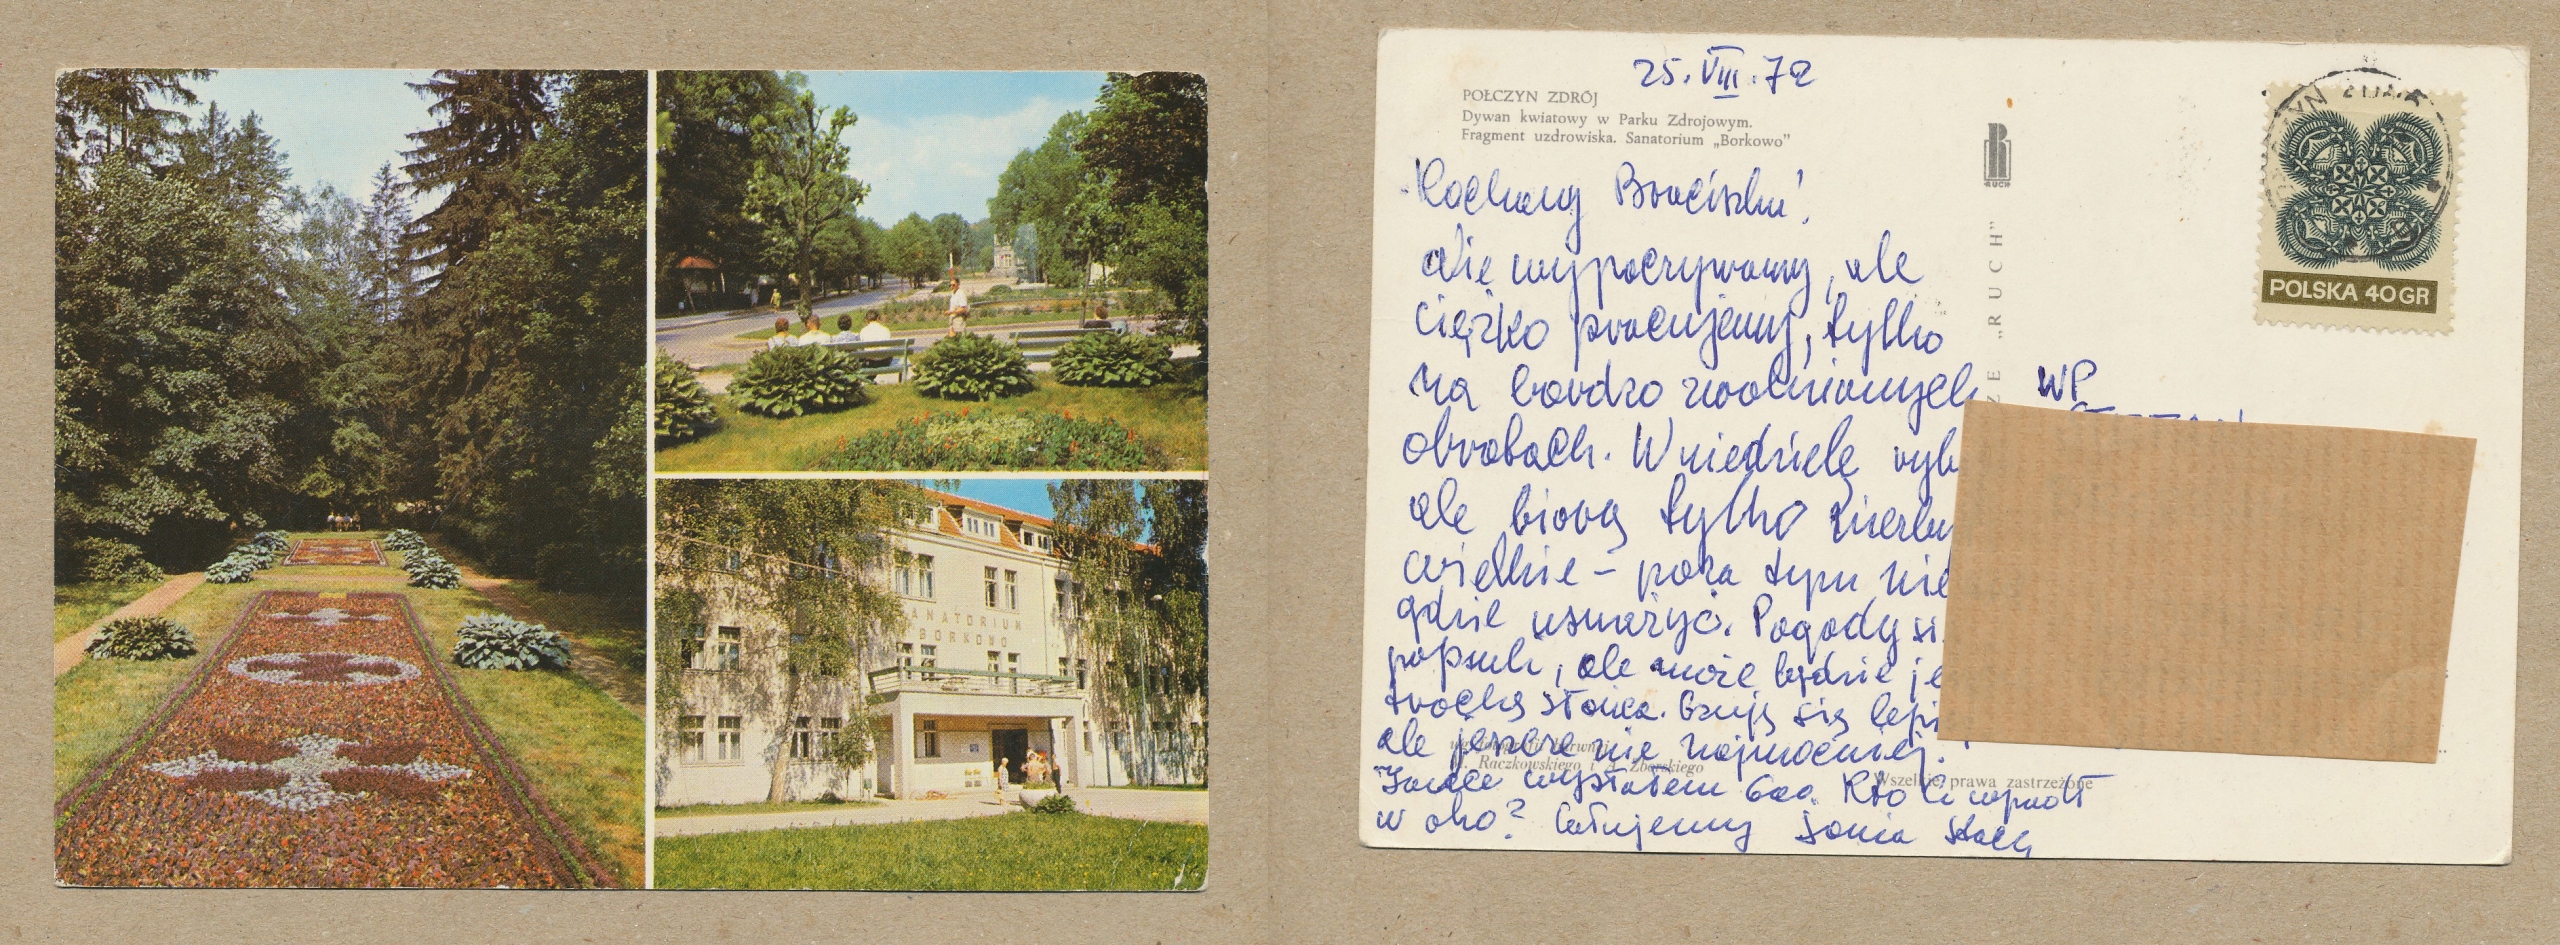 SANATORIUM
BORKOWO
25.VIII.72
POŁCZYN ZDRÓJ
Dywan kwiatowy w Parku Zdrojowym.
Fragment uzdrowiska. Sanatorium „Borkowo”
RUCH
„RUCH”
POLSKA 40 GR
Kochany Braciszku!
Nie wypoczywamy, ale
ciężko pracujemy, tylko
na bardzo zwolnionych
obrotach. W niedzielę ryb
ale biorą tylko
wielkie – poza tym nie
gdzie usmażyć. Pogody si
popsuła, ale może będzie je
trochę słońca. Czuję się lepi
ale jeszcze nie najmocniej.
wysłałem 600. Kto Ci wpadł
w oko? Całujemy Jonia
WP
Raczkowskiego i A. Zborskiego
Wszelkie prawa zastrzeżone